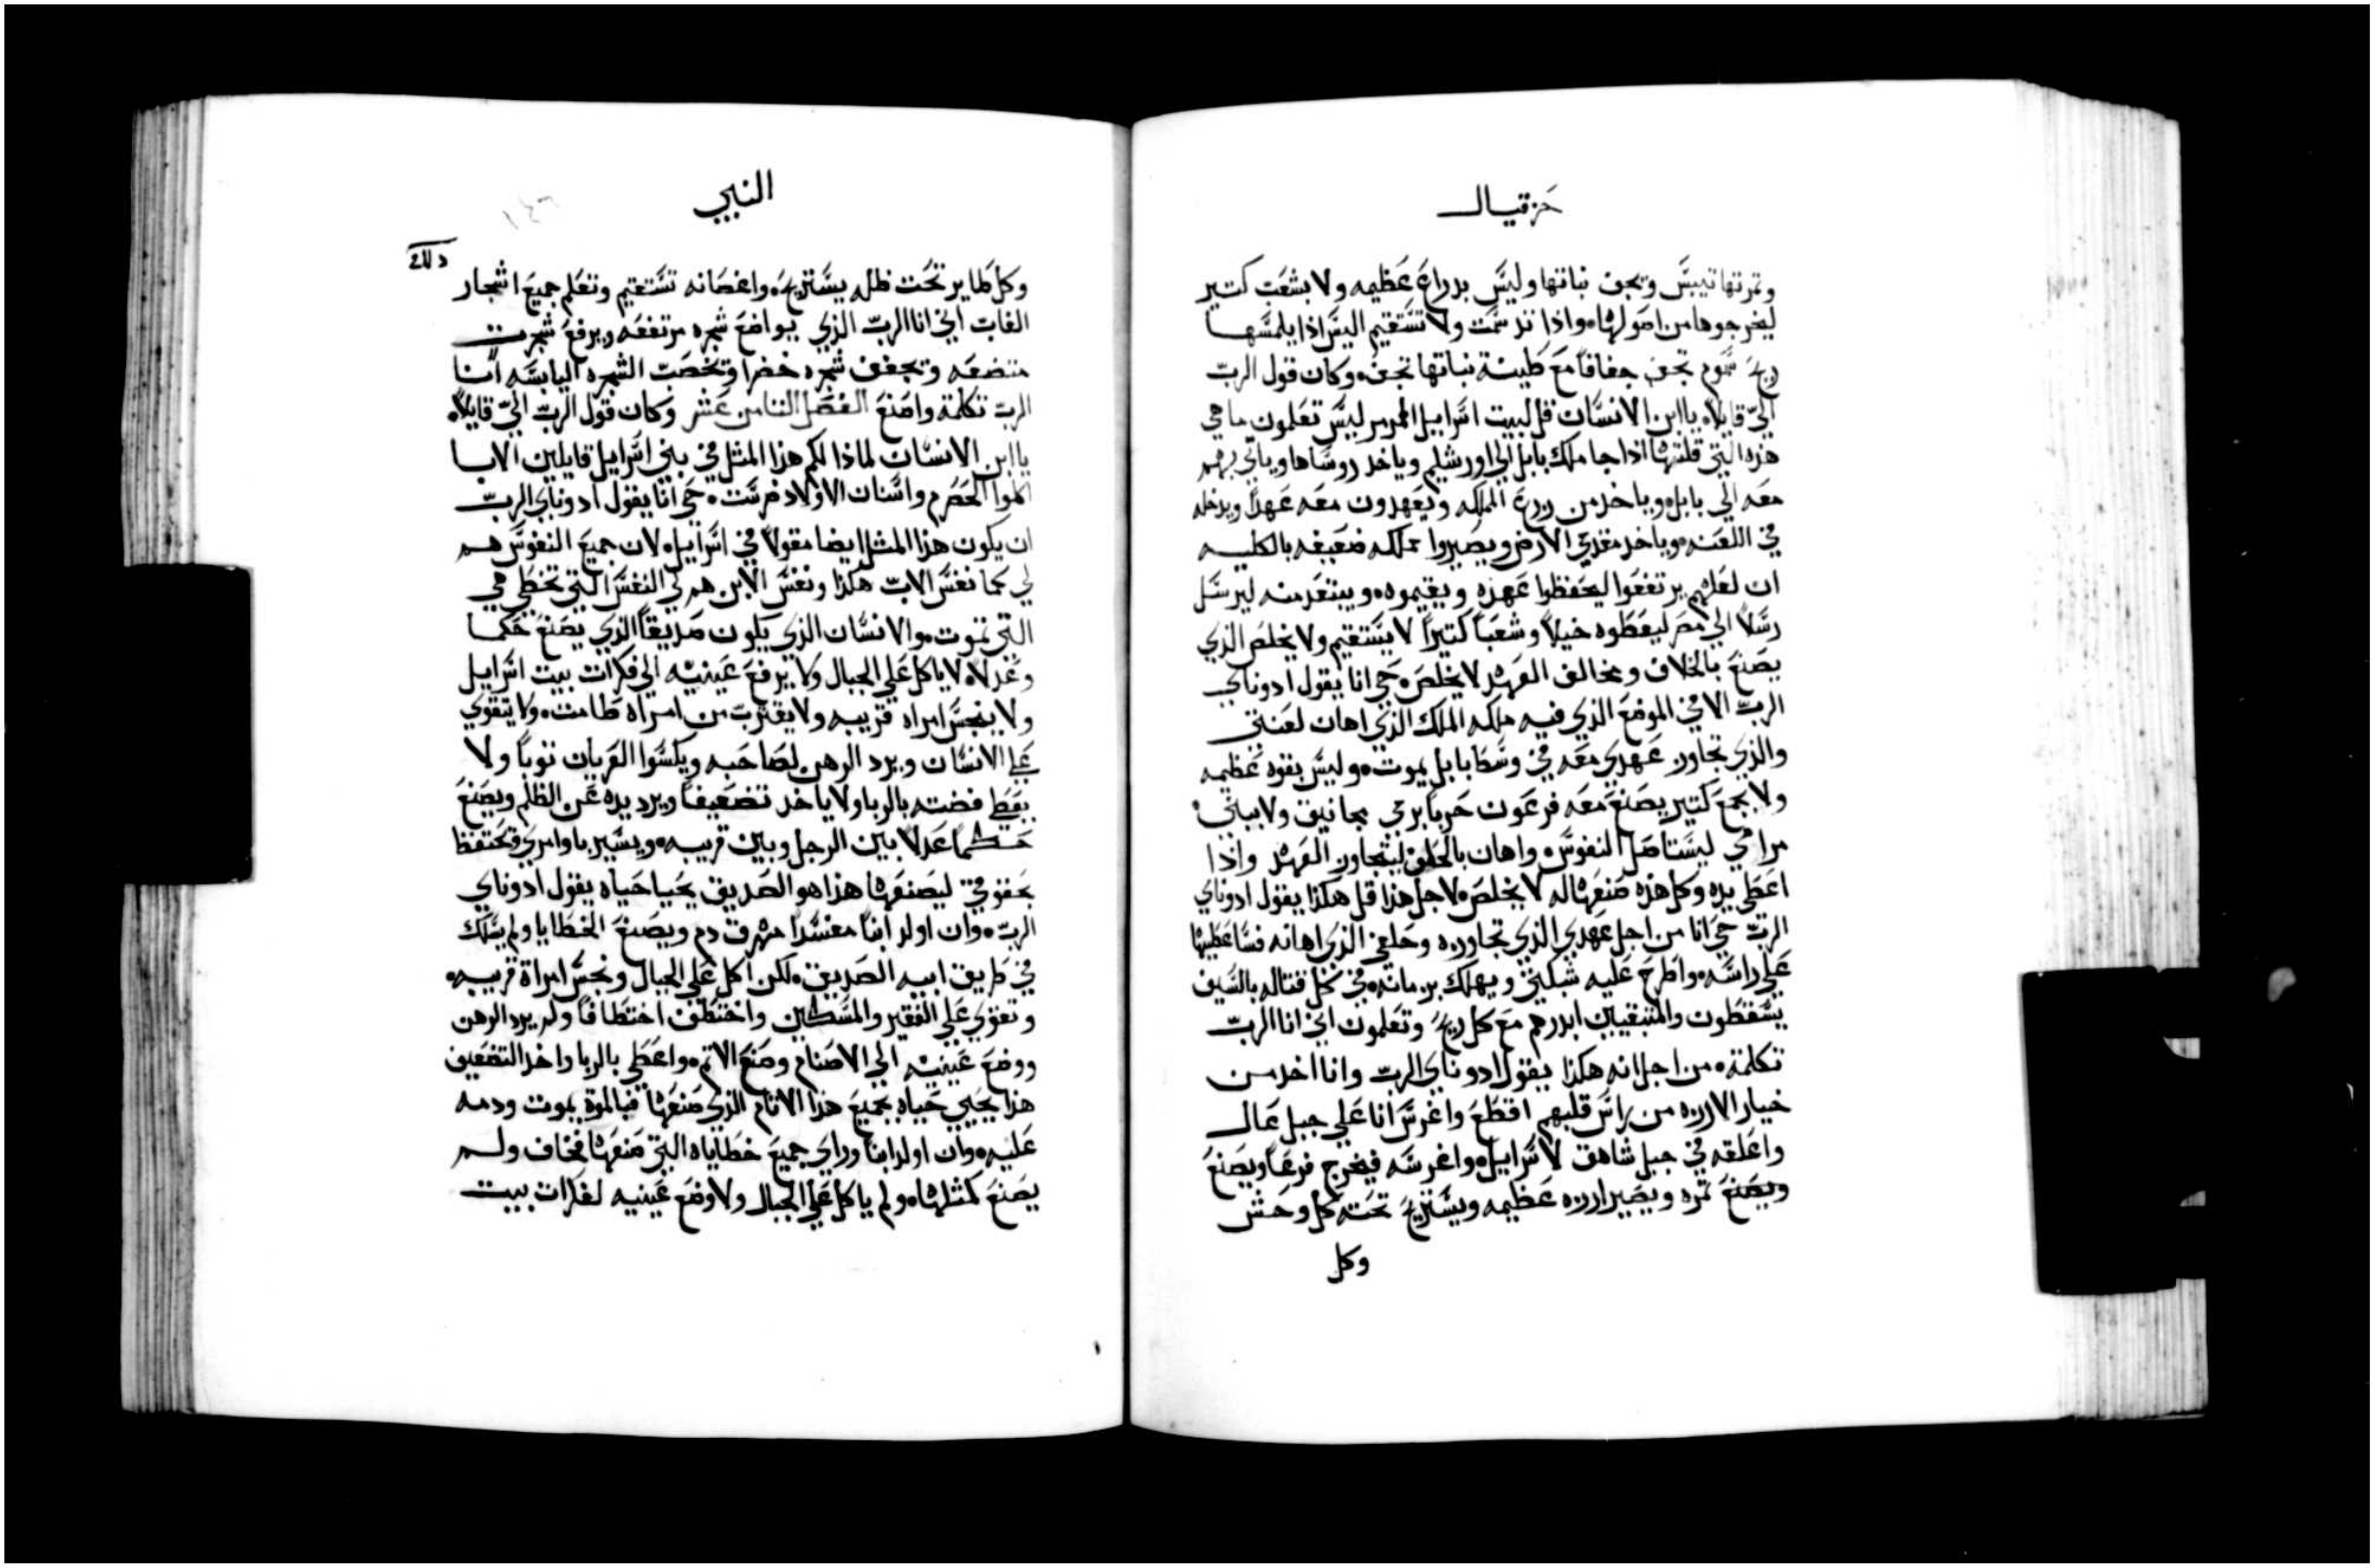 حزقيال
وتمرتها تيبس وتجف نباتها وليس بدراع عظيمه ولا بشعب كتير
ليخرجوها من اصولها، واذا تدسمت ولا تستقيم اليس اذا يلمسها
ريح سموم تجف جفافاً مع طينة نباتها تجف، وكان قول الرب
اليّ قايلاً، يا ابن الانسان قل لبيت اسراييل المرمر ليس تعلمون ما هي
هذه التي قلتها اذا جا ملك بابل الي اورشليم وياخد روساها وياتي بهم
معه الي بابل، وياخد من زرع المملكه ويعهدون معه عهداً ويدخله
في اللعنه، وياخد مقدمي الارض ويصيروا مملكه ضعيفه بالكليه
ان لعلهم يرتفعوا ليحفظوا عهده ويقيموه، ويبتعد منه ليرسل
رسلاً الي مصر ليعطوه خيلاً وشعباً كتيراً لا يستقيم ولا يخلص الذي
يصنع بالخلاف ومخالف العهد لا يخلص، حي انا يقول ادوناي
الرب الا في الموضع الذي فيه ملكه الملك الذي اهان لعنتي
والذي تجاوز عهدي معه في وسط بابل يموت، وليس بقوه عظيمه
ولا بجمع كتير يصنع معه فرعون حرباً برمي مجانيق ولا ببنيٰ
مرامي ليستاصل النفوس، واهان بالحلف ليتجاوز العهد واذا
اعطي يده وكل هذه صنعها له لا يخلص، لاجل هذا قل هكذا يقول ادوناي
الرب حي انا من اجل عهدي الذي تجاوزه وحلفي الذي اهانه فساعطيها
علي راسه، واطرح عليه شبكتي ويهلك برمانه، في كل قتاله بالسيف
يسقطون والمتبقيين ابددهم مع كل ريح وتعلمون اني انا الرب
تكلمت، من اجل انه هكذا يقول ادوناي الرب وانا اخد من
خيار الارزه من راس قلبهم اقطع واغرس انا علي جبل عال
واعلقه في جبل شاهق لاسراييل، واغرسه فيخرج فرعاً ويصنع
ويصنع تمره ويصير ارزه عظيمه ويستريح تحته كل وحش
وكل
النبي
١٤٦
وكلما ير تحت ظله يستريح، واغصانه تستقيم وتعلم جميع اشجار
الغاب اني انا الرب الذي يواضع شجره مرتفعه ويرفع شجرت
متضعه وتجفف شجره خضرا وتخصب الشجره اليابسه انا
الرب تكلمت واصنع الفصل التامن عشر وكان قول الرب اليّ قايلاً،
يا ابن الانسان لماذا لكم هذا المثل في بني اسراييل قايلين الابا
اكلوا الحصرم واسنان الاولاد ضرست، حي انا يقول ادوناي الرب
ان يكون هذا المثل ايضا مقولاً في اسراييل، لان جميع النفوس هم
لي كما نفس الاب هكذا ونفس الابن هم لي النفس التي تخطي هي
التي تموت، والانسان الذي يكون صديقاً الذي يصنع حكما
وعدلاً، لا ياكل علي الجبال ولا يرفع عينيه الي فكرات بيت اسراييل
ولا ينجس امراه قريبه ولا يقترب من امراه طامت، ولا يتقوي
علي الانسان ويرد الرهن لصاحبه ويكسوا العريان توباً ولا
يعطي فضته بالربا ولا ياخد تضعيفاً ويرد يده عن الظلم ويصنع
حكماً عدلاً بين الرجل وبين قريبه، ويسير باوامري ويحتفظ
بحقوقي ليصنعها هذا هو الصديق يحيا حياه يقول ادوناي
الرب، وان اولد ابناً مفسداً مهرق دم ويصنع الخطايا ولم يسلك
في طريق ابيه الصديق، لكن اكل علي الجبال ونجس امراة قريبه،
وتقوي علي الفقير والمسكين واختطف اختطافاً ولم يرد الرهن
ووضع عينيه الي الاصنام وصنع الاتم، واعطي بالربا واخد التضعيف
هذا يحيي حياه بجميع هذا الاتام الذي صنعها فبالموة يموت ودمه
عليه، وان اولد ابناً وراي جميع خطاياه التي صنعها فخاف ولم
يصنع كمثلها، ولم ياكل علي الجبال ولا وضع عينيه لفكرات بيت